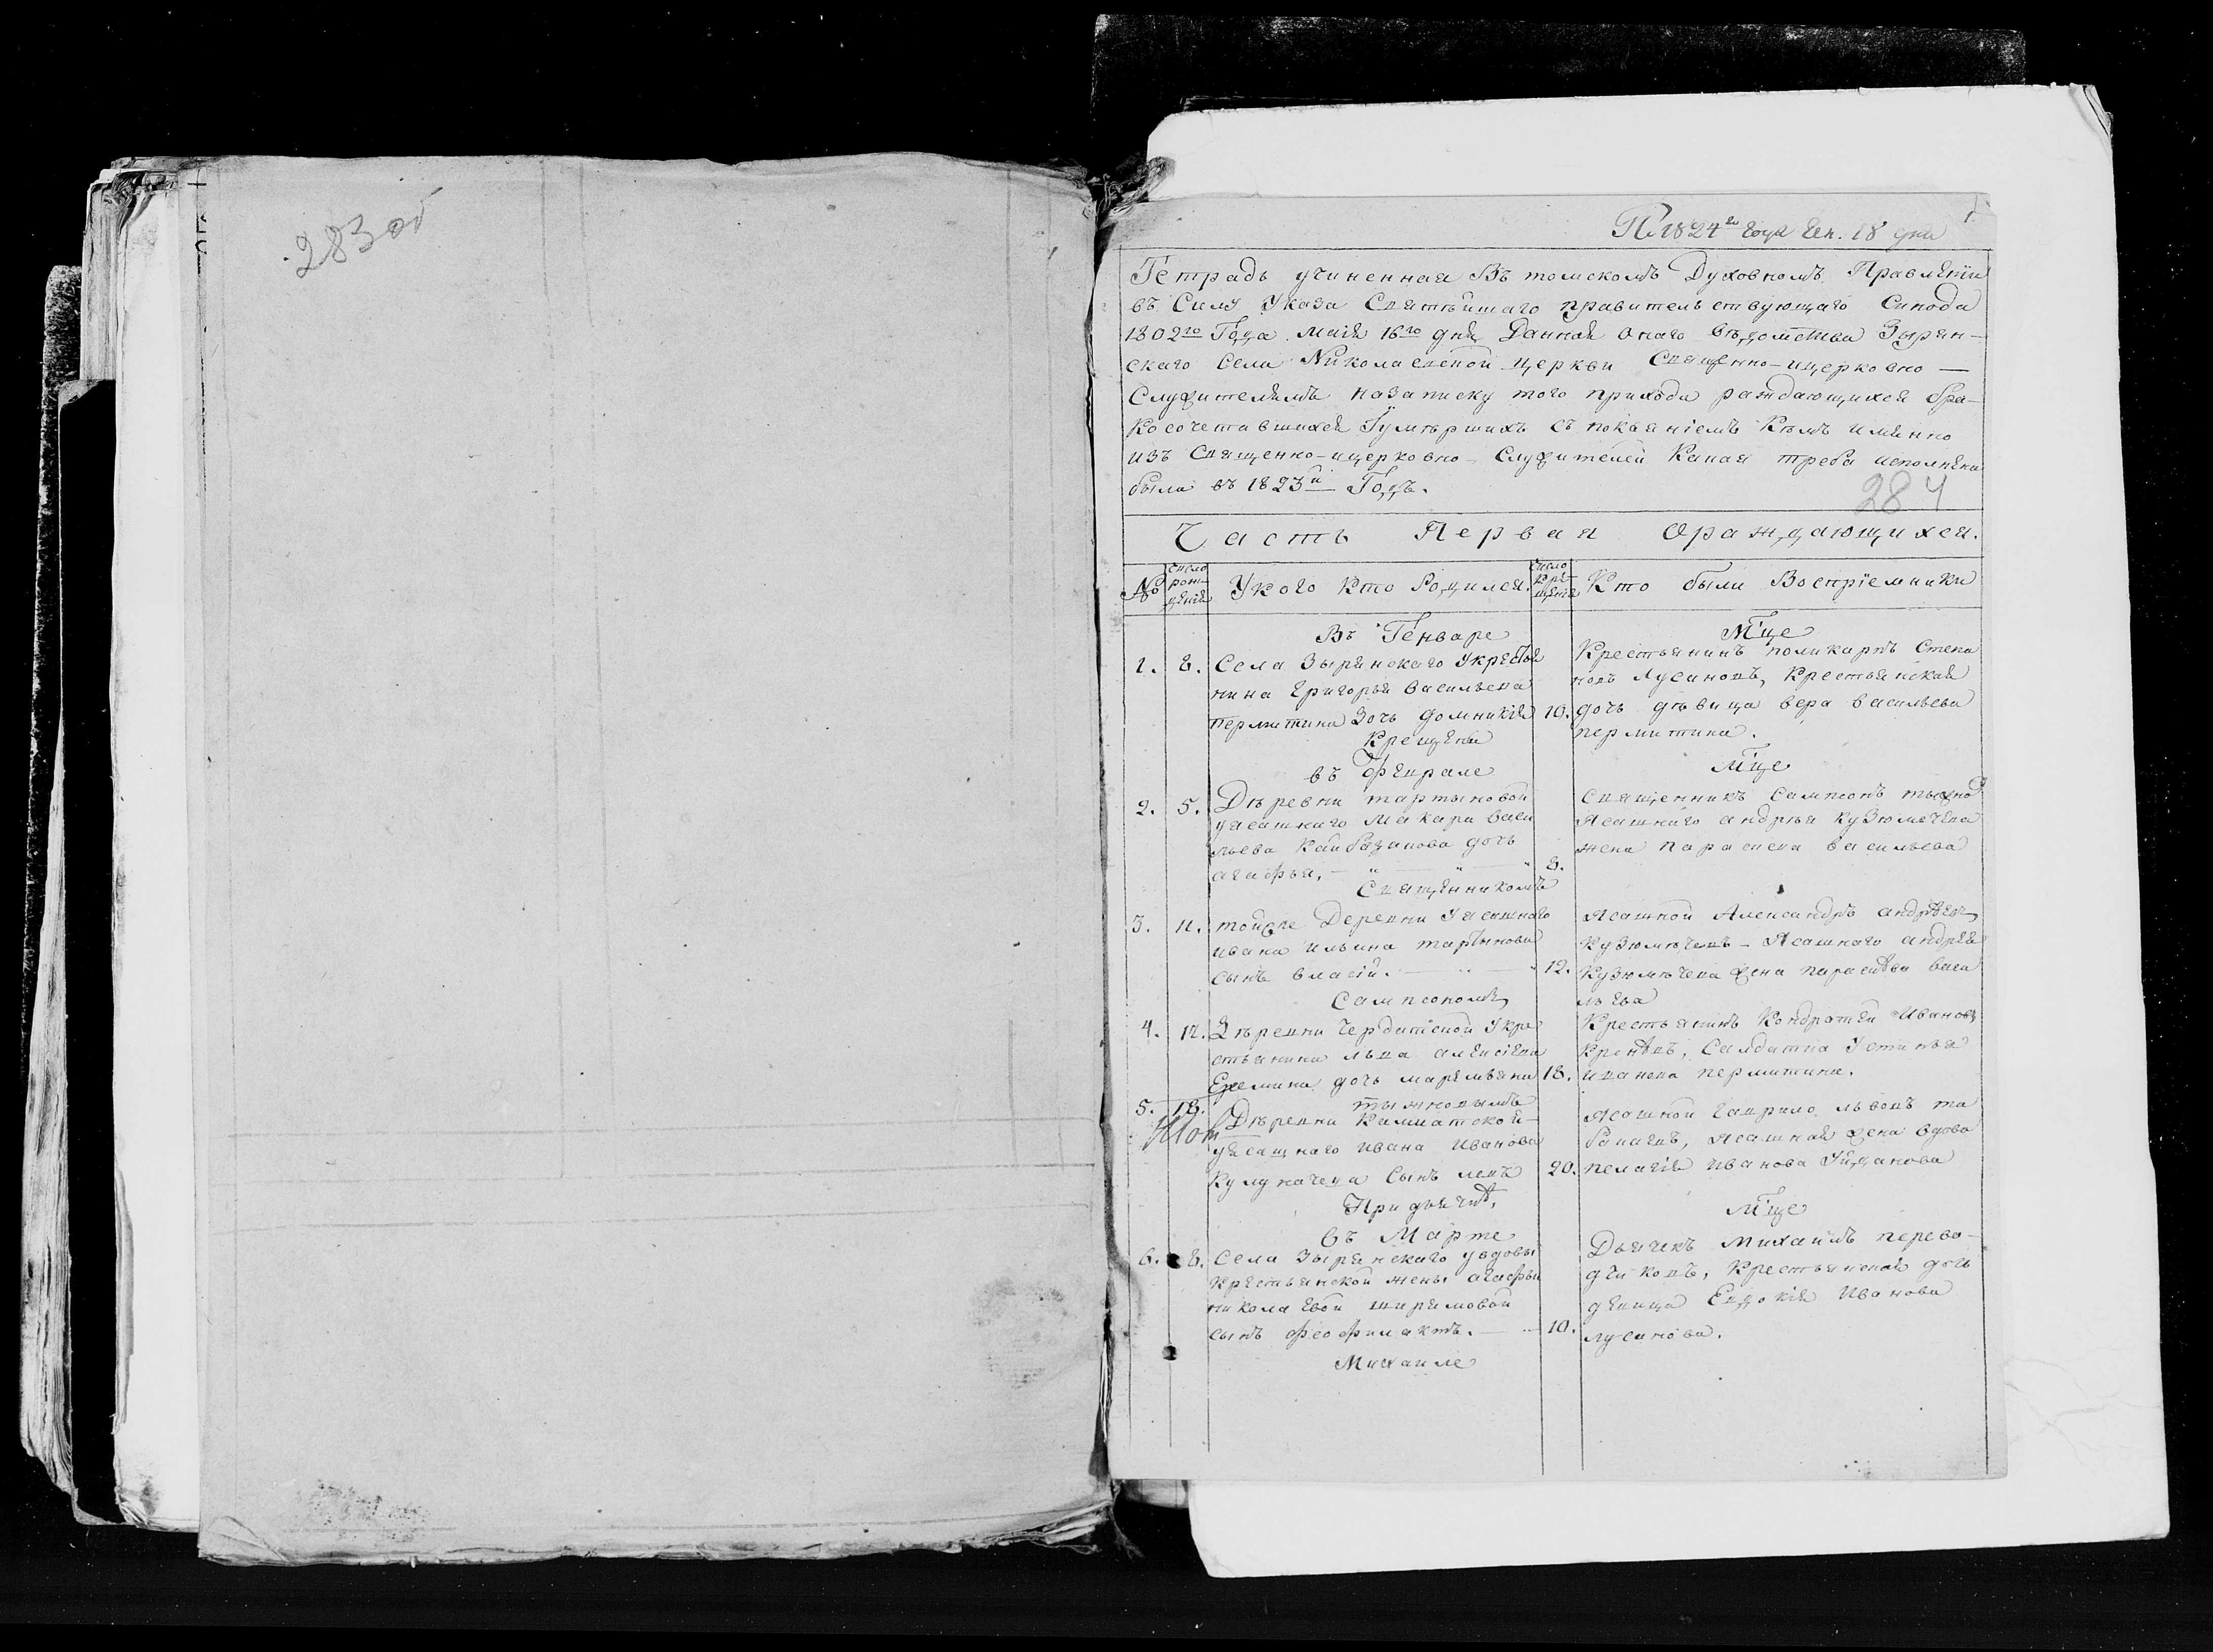 283 об
1824го года Ген. 18 дня
Тетрадь учиненная Въ томскомъ Духовномъ Правленiи
въ Силу Указа Святѣйшаго правительствующаго Синода
1802го Года маiя 16го дня Данная онаго вѣдомства Зырян-
скаго Села Николаевской церкви Священно-ицерковно —
Служителямъ назаписку того прихода раждающихся бра-
косочетавшихся Iумѣршихъ съ показнiемъ Кѣмъ имянно
изъ Священно-ицерковно-Служителей Какая треба исполнена
была въ 1823й Годъ.
284
Часть Первая Ораждающихся.
№ число рож-денiя Укого Кто Родился. число кре-щенiя Кто были Воспрiемники
Въ Генваре Мце
1. 8. Села Зырянскаго Укрестья
нина Григорья васильева
пермитина дочь домникiя 10.
крещена
Крестьянинъ поликарпъ Степа
новъ Лусиновъ, Крестьянская
дочь дѣвица вера васильева
пермитина.
въ Феврале Мце
2. 5. Дѣревни тартыновой
уясашнаго Макара васи
льева Кайбазакова дочь
агафья, — 8.
Священникомъ
Священникъ Сампсонъ
Ясашнаго андрея Кузюмечева
жена Параскева васильева
3. 11. тойже Деревни Уясашнаго
ивана ильина тартынова
сынъ власiй. — 12.
Сампсономъ
Ясашной Александръ андрѣевъ
Кузюмѣчевъ — Ясашнаго андрея
Кузюмѣчева жена параскѣва васи
льева
4. 12. Дѣревни Чердатской Укре
стьянина льва алексiева
Еремина дочь маремьяна 18.
тыжновымъ
Крестьянинъ Кондратей Ивановъ
Салдатка Устинья
иванова пермитина.
5. 18. Дѣревни Калматской —
уясашнаго ивана иванова
Кулукачева сынъ левъ 20.
При дьячкѣ,
Ясашной гаврило львовъ та
бачаевъ, Ясашная жена вдова
пелагiя иванова
въ Марте Мце
6. 8. Села Зырянскаго увдовы
Крестьянской жены агафьи
николаевой ширямовой
сынъ феофилактъ. — 10.
Михаиле
Дьячекъ Михаилъ перево-
дчиковъ, Крестьянская дочь
девица Евдокiя Иванова
лусинова.